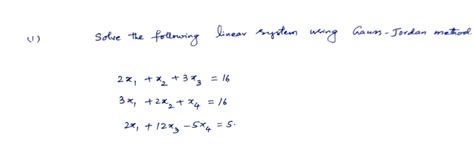 (1) Solve the following linear system using Gauss-Jordan method
2x₁ + x₂ + 3x₃ = 16
3x₁ + 2x₂ + x₄ = 16
2x₁ + 12x₃ - 5x₄ = 5.